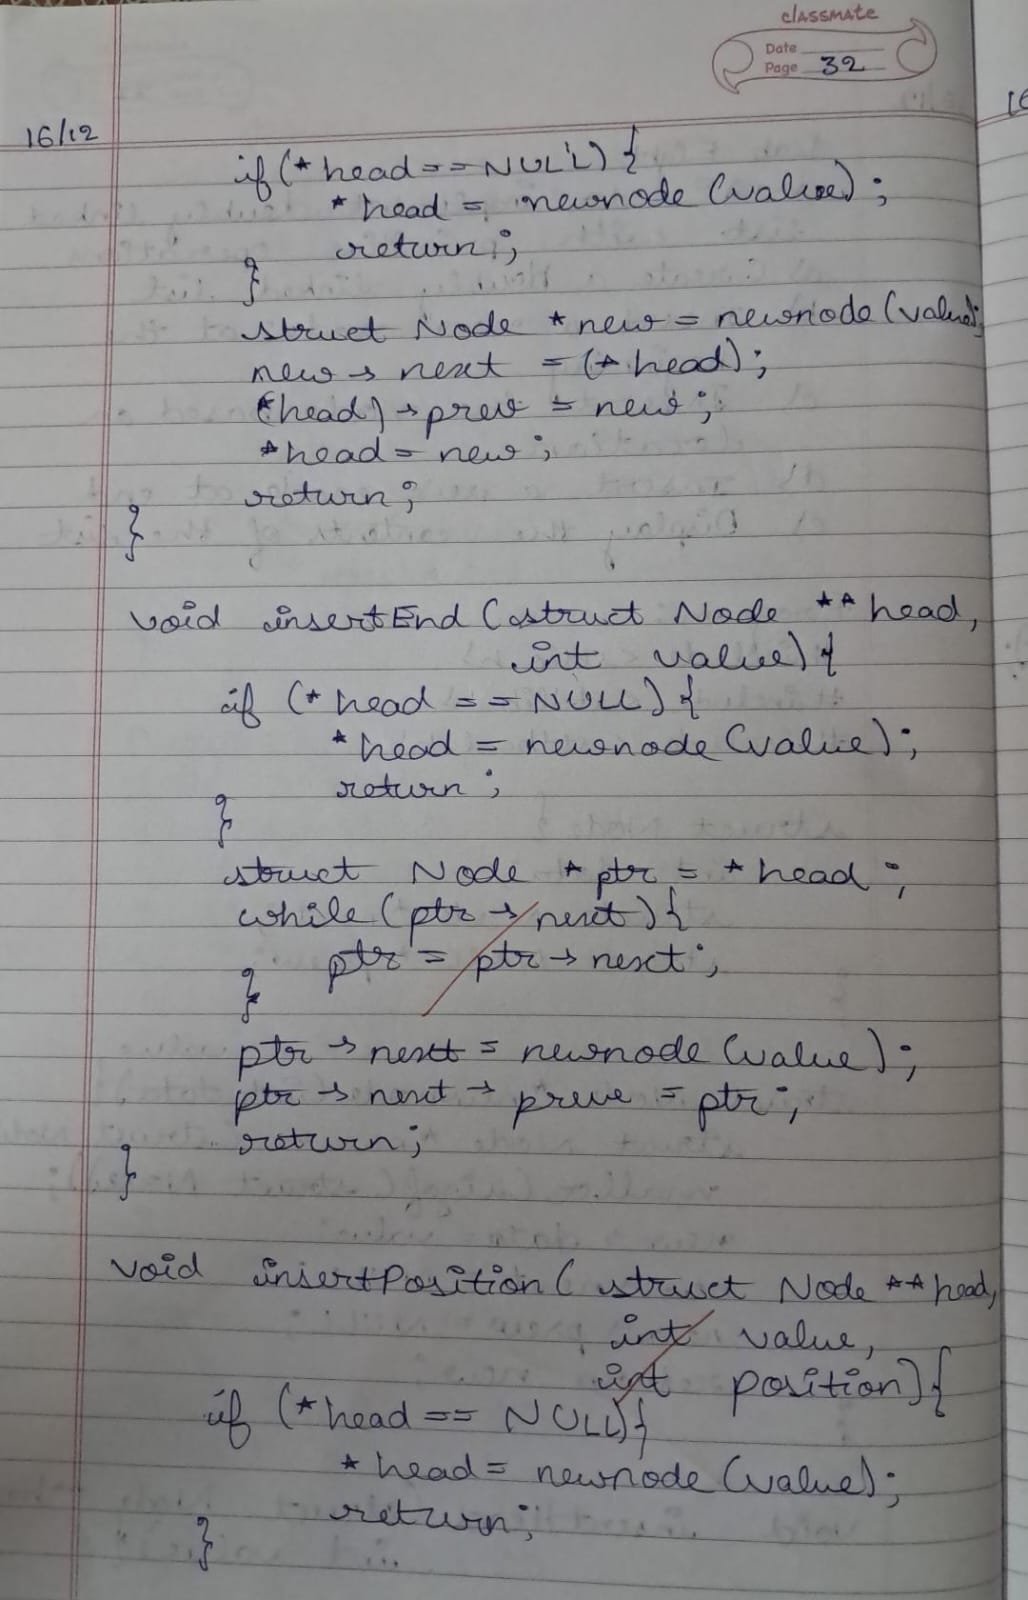 classmate
Date
Page 32
16/12
if (*head == NULL) {
*head = newnode (value);
return;
}
struct Node *new = newnode (value);
new → next = (*head);
(*head) → prev = new;
*head = new;
return;
}
void insertEnd (struct Node **head,
int value) {
if (*head == NULL) {
*head = newnode (value);
return;
}
struct Node *ptr = *head;
while (ptr → next) {
ptr = ptr → next;
}
ptr → next = newnode (value);
ptr → next → preve = ptr;
return;
}
void insertPosition ( struct Node **head,
int value,
int position) {
if (*head == NULL) {
*head = newnode (value);
return;
}